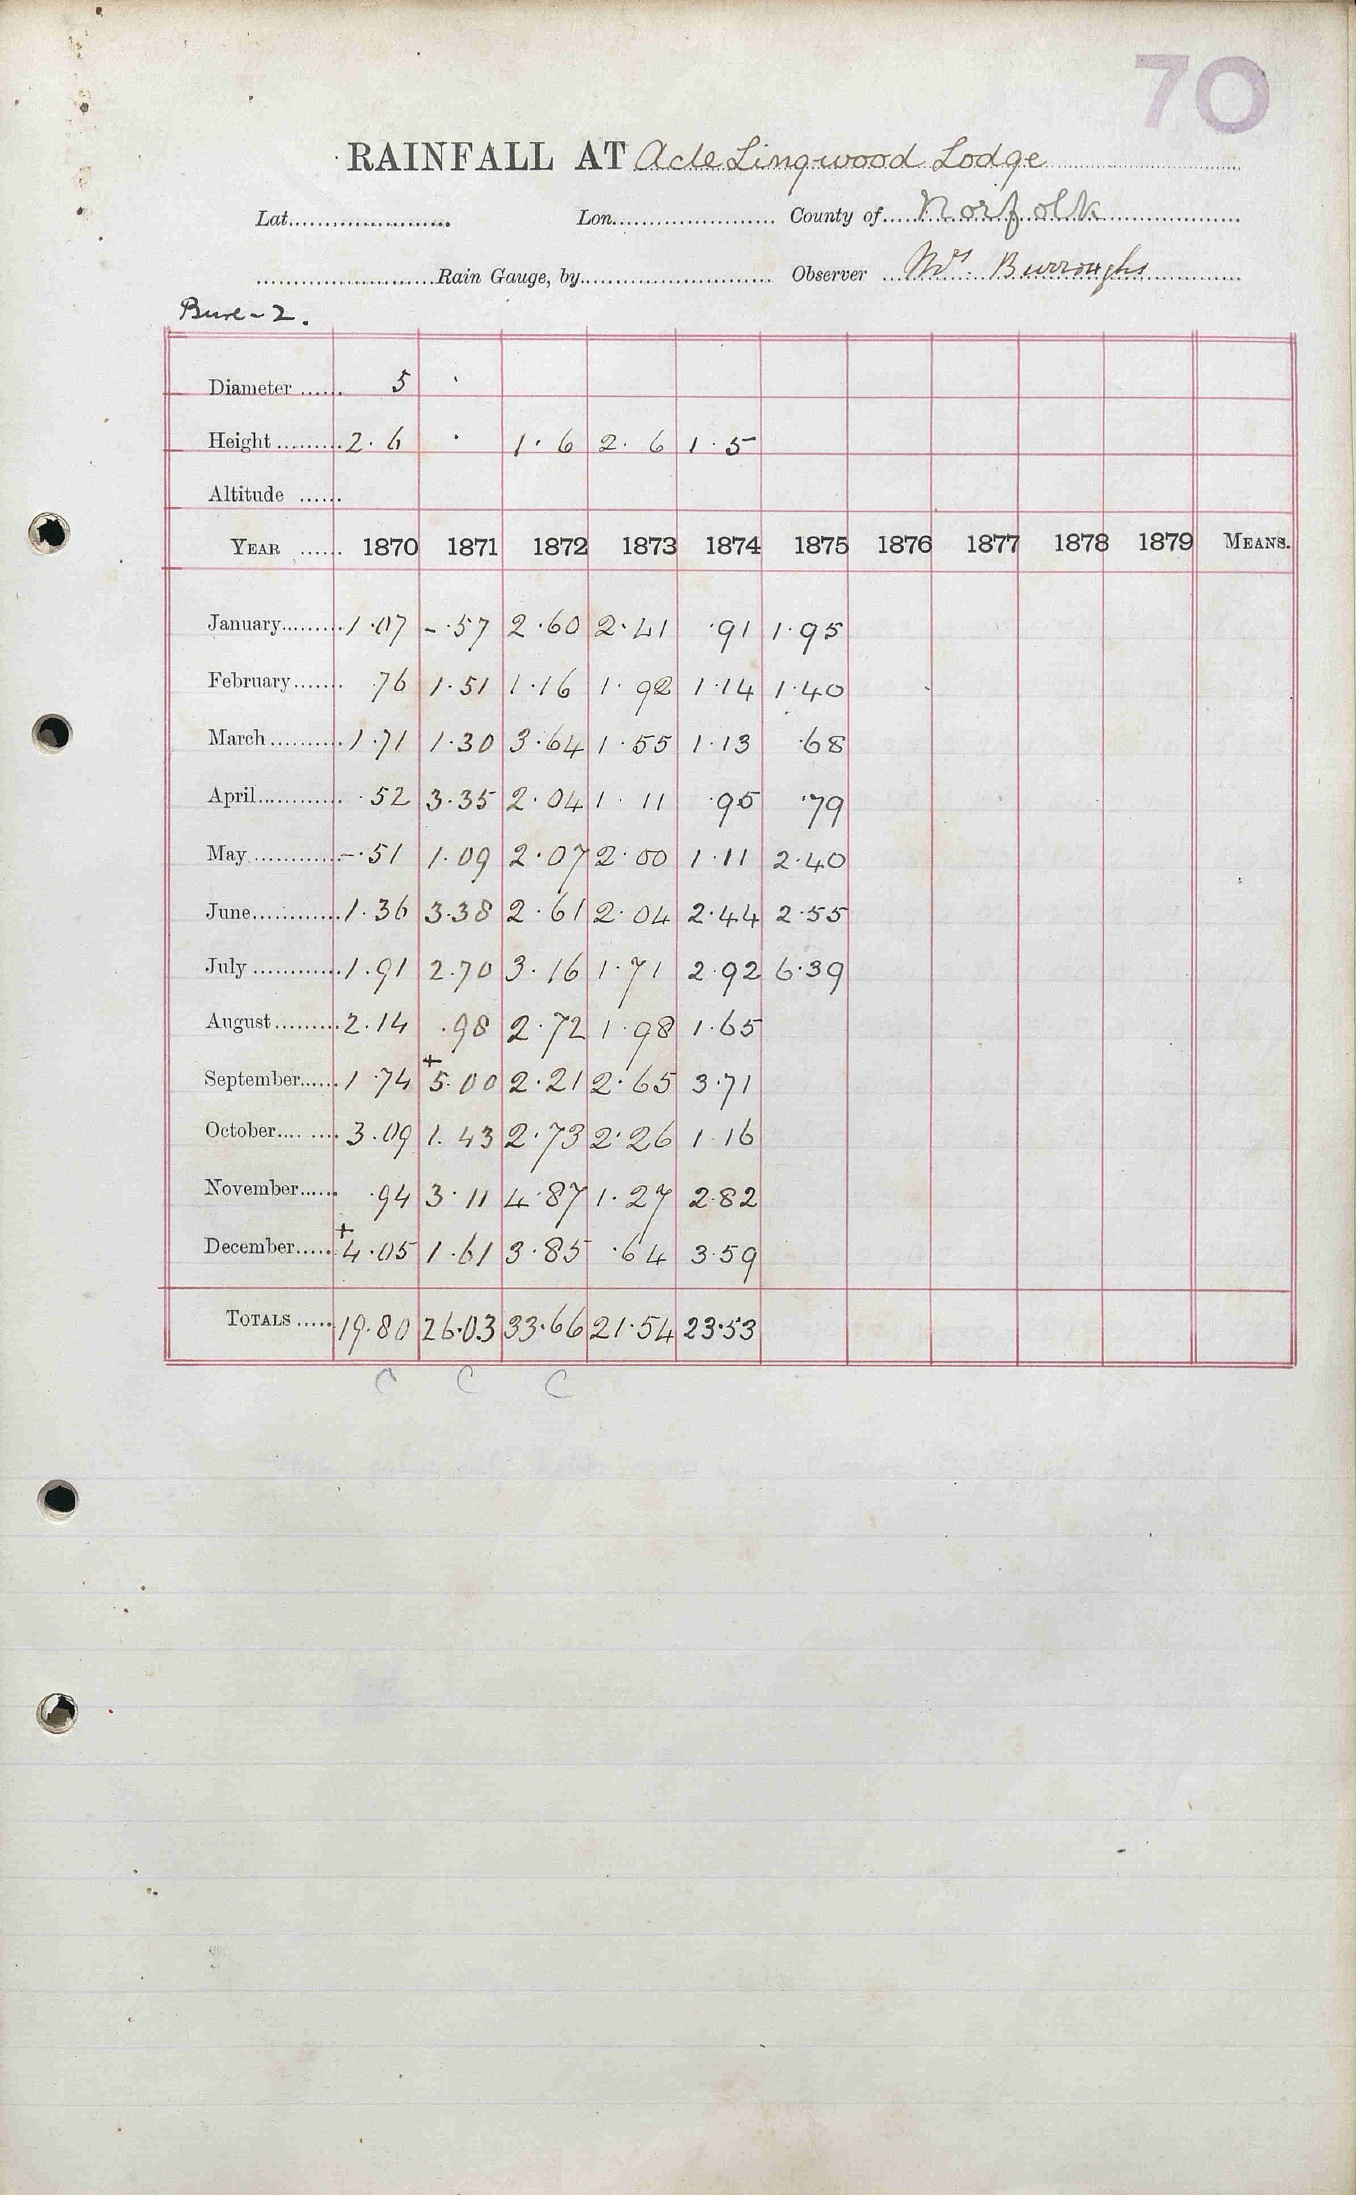 70
RAINFALL AT Acle Lingwood Lodge
Lat. Lon. County of Norfolk
Rain Gauge, by Observer Mrs. Burroughs
Bure - 2.
Diameter 5
Height 2.6 1.6 2.6 1.5
Altitude
YEAR 1870 1871 1872 1873 1874 1875 1876 1877 1878 1879 MEANS.
January 1.07 -.57 2.60 2.41 .91 1.95
February .76 1.51 1.16 1.92 1.14 1.40
March 1.71 1.30 3.64 1.55 1.13 .68
April .52 3.35 2.04 1.11 .95 .79
May -.51 1.09 2.07 2.00 1.11 2.40
June 1.36 3.38 2.61 2.04 2.44 2.55
July 1.91 2.70 3.16 1.71 2.92 6.39
August 2.14 .98 2.72 1.98 1.65
September 1.74 +5.00 2.21 2.65 3.71
October 3.09 1.43 2.73 2.26 1.16
November .94 3.11 4.87 1.27 2.82
December +4.05 1.61 3.85 .64 3.59
TOTALS 19.80 26.03 33.66 21.54 23.53
C C C